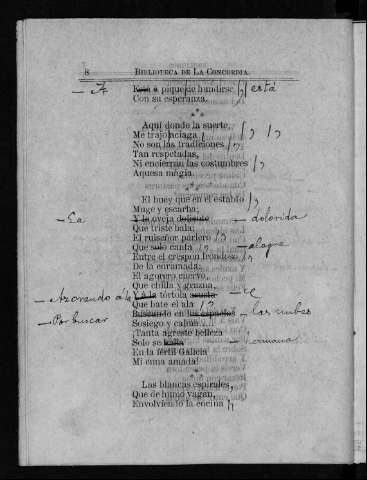 8 BIBLIOTECA DE LA CONCORDIA.
Está á pique de hundirse está
Con su esperanza.
Aquí donde la suerte,
Me trajo aciaga
No son las tradiciones
Tan respetadas,
Ni encierran las costumbres
Aquesa mágia.
El buey que en el establo
Muge y escarba;
La Y la oveja doliente dolorida
Que triste bala;
El ruiseñor parlero
Que solo canta alegre
Entre el crespon frondoso
De la enramada;
El agorero cuervo,
Que chilla y grazna,
Y á la tórtola
Que bate el ala
Por buscar Buscando en los espacios las nubes
Sosiego y calma....
¡Tanta agreste belleza
Solo se halla hermana
En la fértil Galicia
Mi cuna amada!
Las blancas espirales,
Que de humo vagan,
Envolviendo la cocina